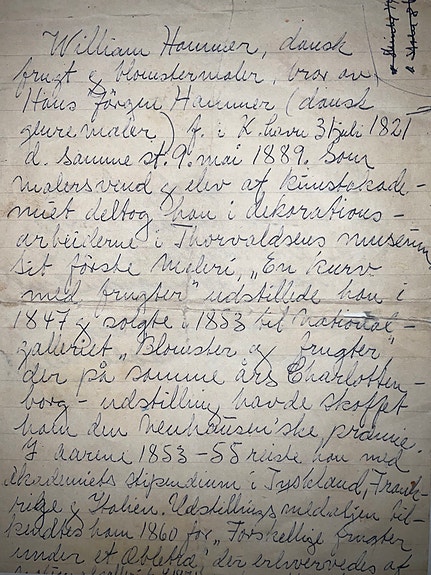 William Hammer, dansk
frugt og blomstermaler, bror av
Hans Jörgen Hammer (dansk
genremaler) f. i K.havn 31 juli 1821
d. samme st. 9. mai 1889. Som
malersvend og elev af kunstakade-
miet deltog han i dekorations-
arbeiderne i Thorvaldsens museum
Sit förste maleri, „En kurv
med frugter" udstillede han i
1847 og solgte i 1853 til National-
galleriet „Blomster og frugter"
der på samme års Charlotten-
borg-udstilling havde skaffet
ham den Neuhausen'ske præmie.
I aarene 1853-55 reiste han med
akademiets stipendium i Tyskland, Frank-
rige og Italien. Udstillingsmedaljen til-
kendtes ham 1860 for „Forskellige frugter
under et æbletræ" der erhvervedes af